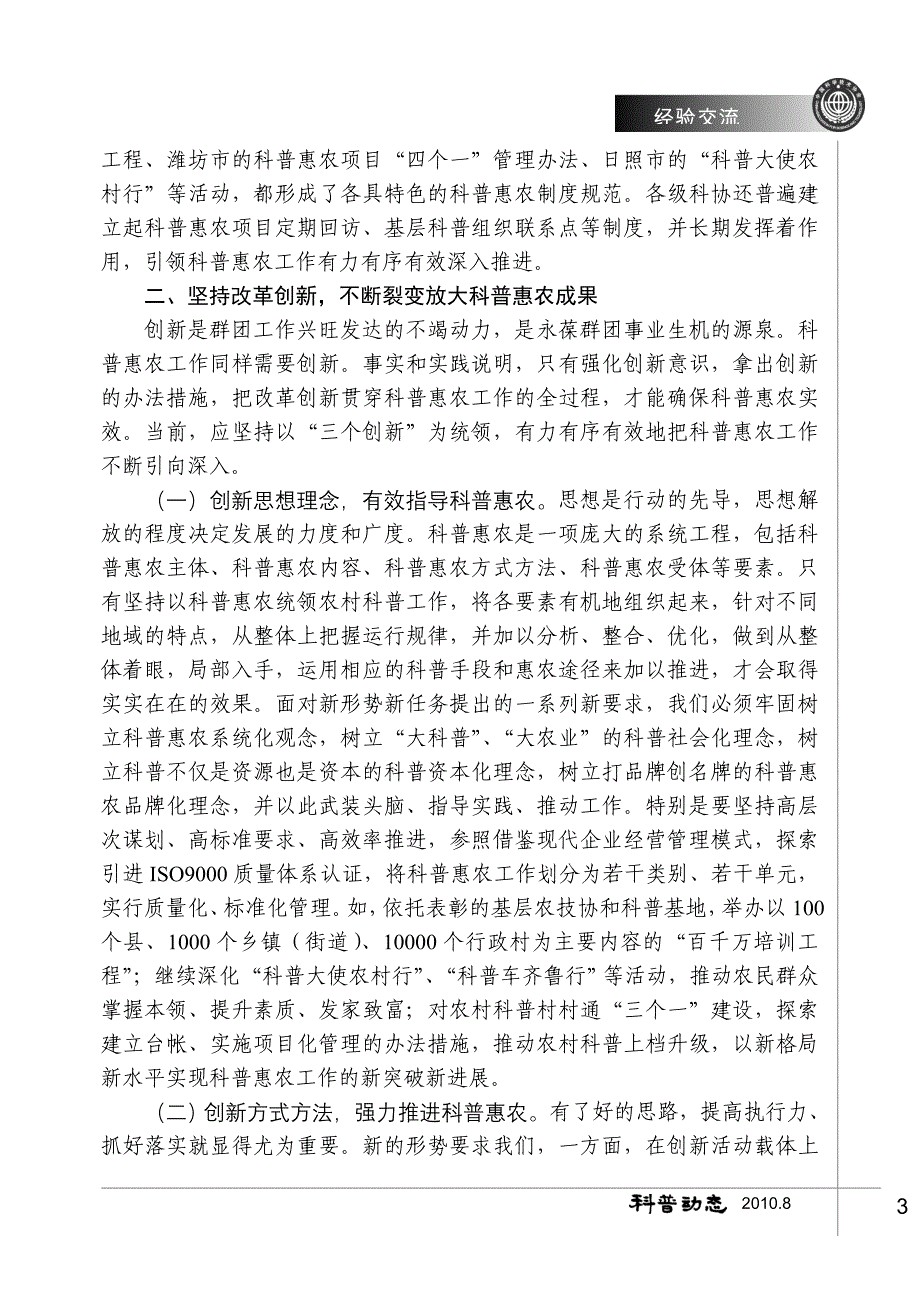 经验交流
工程、潍坊市的科普惠农项目“四个一”管理办法、日照市的“科普大使农
村行”等活动，都形成了各具特色的科普惠农制度规范。各级科协还普遍建
立起科普惠农项目定期回访、基层科普组织联系点等制度，并长期发挥着作
用，引领科普惠农工作有力有序有效深入推进。
二、坚持改革创新，不断裂变放大科普惠农成果
创新是群团工作兴旺发达的不竭动力，是永葆群团事业生机的源泉。科
普惠农工作同样需要创新。事实和实践说明，只有强化创新意识，拿出创新
的办法措施，把改革创新贯穿科普惠农工作的全过程，才能确保科普惠农实
效。当前，应坚持以“三个创新”为统领，有力有序有效地把科普惠农工作
不断引向深入。
（一）创新思想理念，有效指导科普惠农。思想是行动的先导，思想解
放的程度决定发展的力度和广度。科普惠农是一项庞大的系统工程，包括科
普惠农主体、科普惠农内容、科普惠农方式方法、科普惠农受体等要素。只
有坚持以科普惠农统领农村科普工作，将各要素有机地组织起来，针对不同
地域的特点，从整体上把握运行规律，并加以分析、整合、优化，做到从整
体着眼，局部入手，运用相应的科普手段和惠农途径来加以推进，才会取得
实实在在的效果。面对新形势新任务提出的一系列新要求，我们必须牢固树
立科普惠农系统化观念，树立“大科普”、“大农业”的科普社会化理念，树
立科普不仅是资源也是资本的科普资本化理念，树立打品牌创名牌的科普惠
农品牌化理念，并以此武装头脑、指导实践、推动工作。特别是要坚持高层
次谋划、高标准要求、高效率推进，参照借鉴现代企业经营管理模式，探索
引进 ISO9000 质量体系认证，将科普惠农工作划分为若干类别、若干单元，
实行质量化、标准化管理。如，依托表彰的基层农技协和科普基地，举办以 100
个县、1000 个乡镇（街道）、10000 个行政村为主要内容的“百千万培训工
程”；继续深化“科普大使农村行”、“科普车齐鲁行”等活动，推动农民群众
掌握本领、提升素质、发家致富；对农村科普村村通“三个一”建设，探索
建立台帐、实施项目化管理的办法措施，推动农村科普上档升级，以新格局
新水平实现科普惠农工作的新突破新进展。
（二）创新方式方法，强力推进科普惠农。有了好的思路，提高执行力、
抓好落实就显得尤为重要。新的形势要求我们，一方面，在创新活动载体上
科普动态 2010.8 3